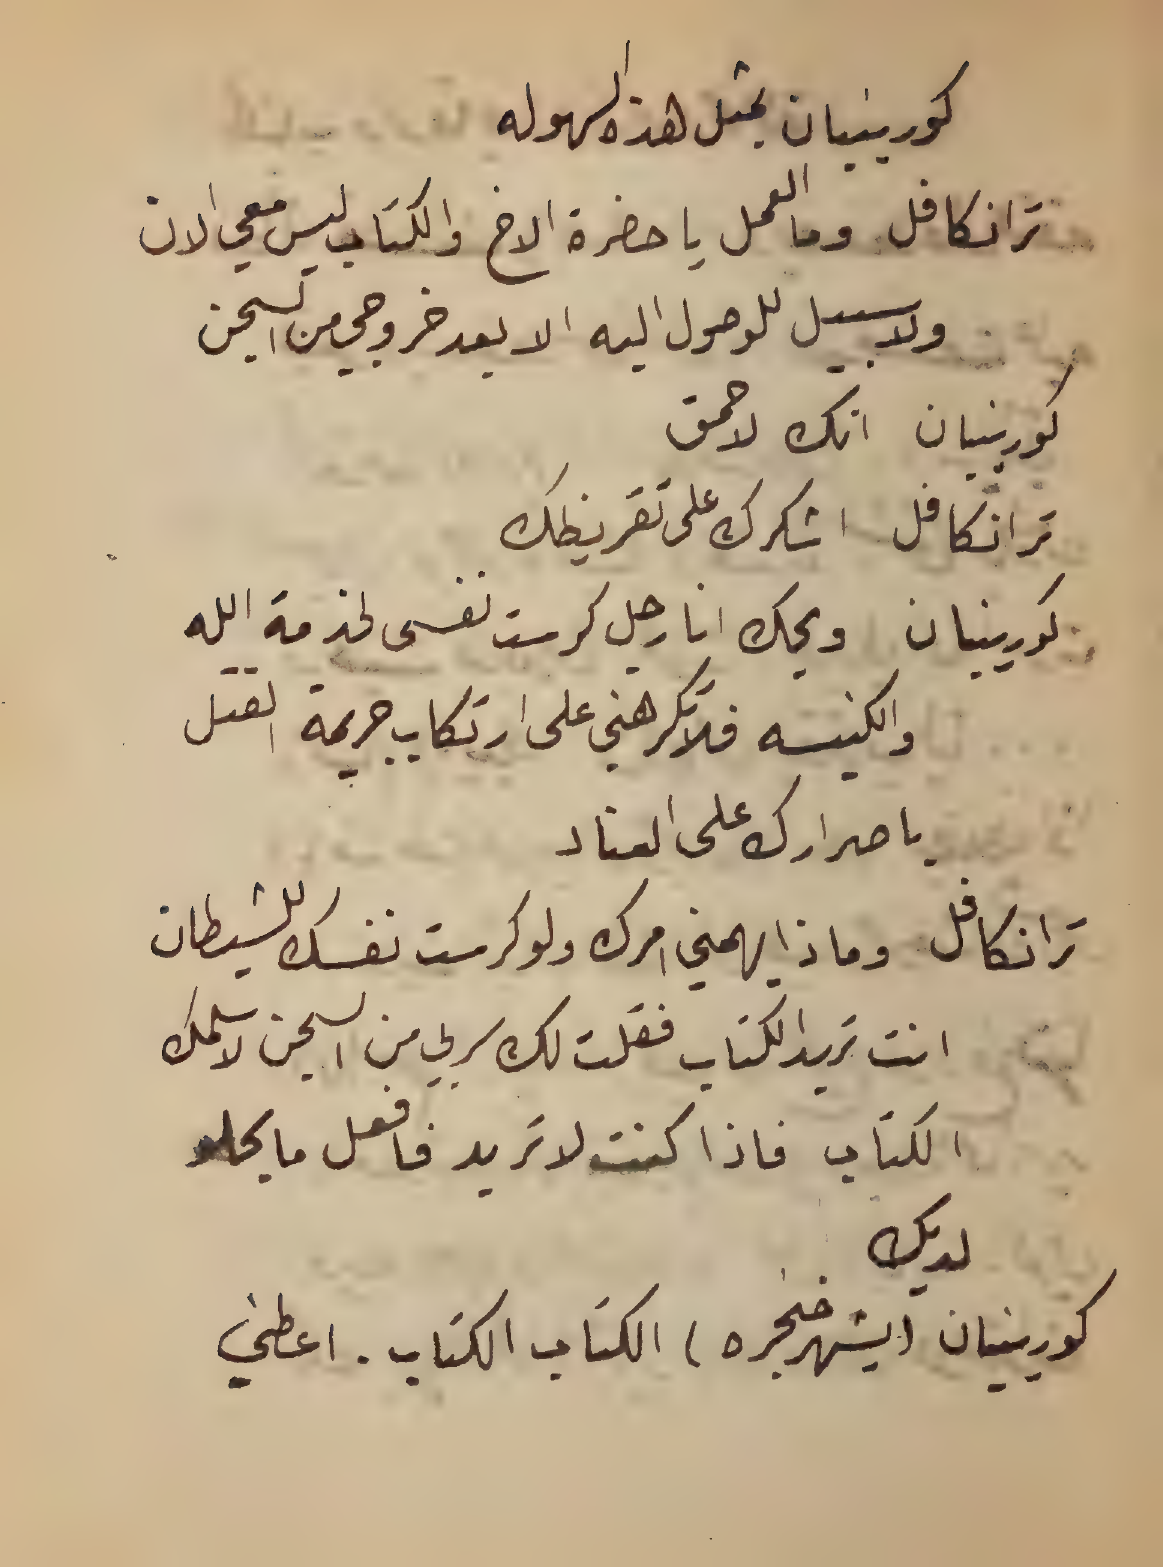 كورينيان بمثل هذه السهوله
ترانكافل وما العمل يا حضرة الاخ والكتاب ليس معي الان
ولا سبيل للوصول اليه الا بعد خروجي من السجن
كورينيان انك لاحمق
ترانكافل اشكرك على تقريظك
كورينيان ويحك انا رجل كرست نفسى لخدمة الله
والكنيسه فلا تكرهني على ارتكاب جريمة القتل
باصرارك على العناد
ترانكافل وماذا يهمني امرك ولو كرست نفسك للشيطان
انت تريد الكتاب فقلت لك سر بي من السجن لاسلمك
الكتاب فاذا كنت لا تريد فافعل ما يحلو
لديك
كورينيان (يشهر خنجره) الكتاب الكتاب. اعطني